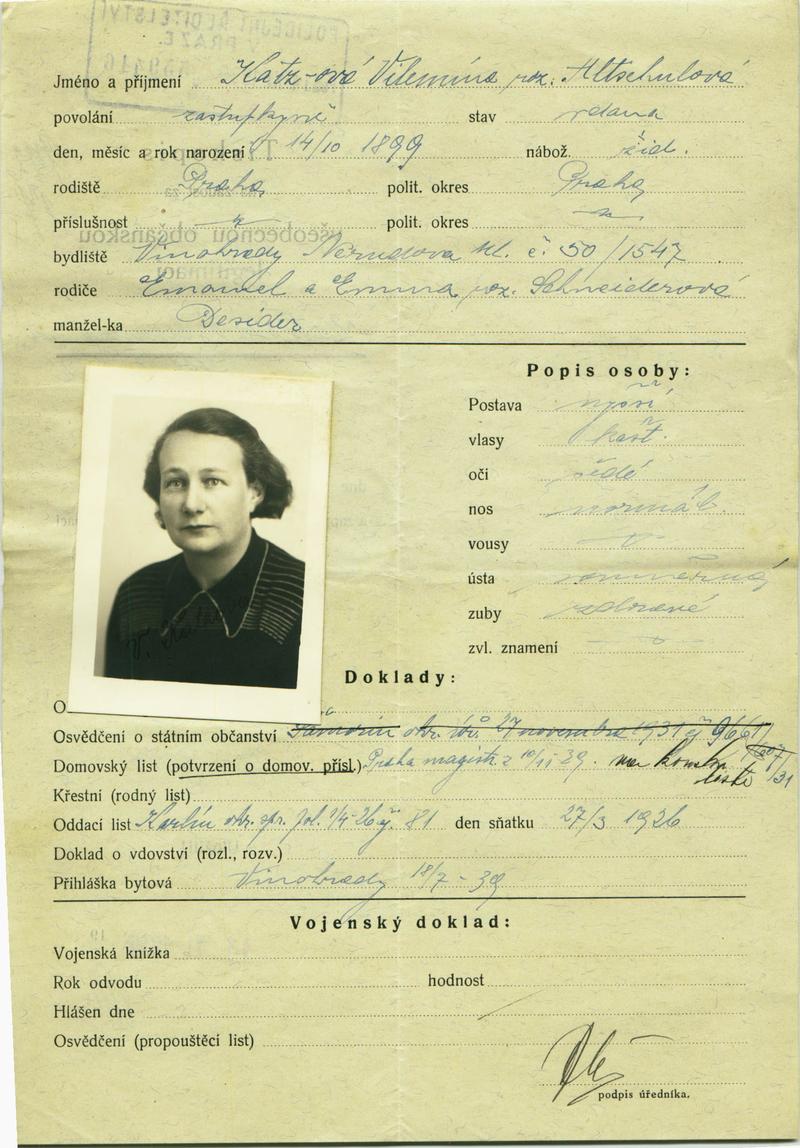 POLICEJNÍ ŘEDITELSTVÍ
V PRAZE
Jméno a příjmení Katz-ová Vilemína roz. Altschulová
povolání zástupkyně stav vdaná
den, měsíc a rok narození 14/10 1899 nábož. žid.
rodiště Praha polit. okres Praha
příslušnost polit. okres
všeobecnou občanskou
bydliště Vinohrady Nerudova č. 50/1547
legitimaci
rodiče Emanuel a Emma roz. Schneiderová
manžel-ka Desider
Popis osoby:
Postava vyšší
vlasy kašt.
oči šedé
nos normál.
vousy
ústa souměrná
zuby zdravé
zvl. znamení
V. Katzová
Doklady:
O
Osvědčení o státním občanství okr. úř. 27 novembra 1931 č 9661/
Domovský list (potvrzení o domov. přísl.) Praha magistr. z 10/11-39.
31
Křestní (rodný list)
Oddací list Karlín okr. fol. 1/4-26 č. 81 den sňatku 27/3 1926
Doklad o vdovství (rozl., rozv.)
Přihláška bytová Vinohrady 18/7 - 39
Vojenský doklad:
Vojenská knížka
Rok odvodu hodnost
Hlášen dne
Osvědčení (propouštěcí list)
podpis úředníka.